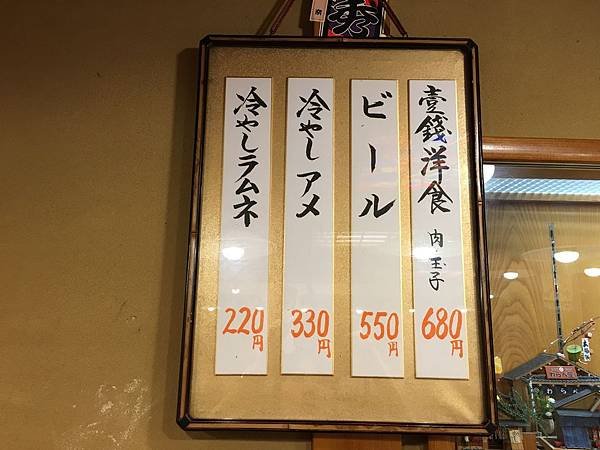 壹錢洋食 肉・玉子
680円
ビール
550円
冷やしアメ
330円
冷やしラムネ
220円